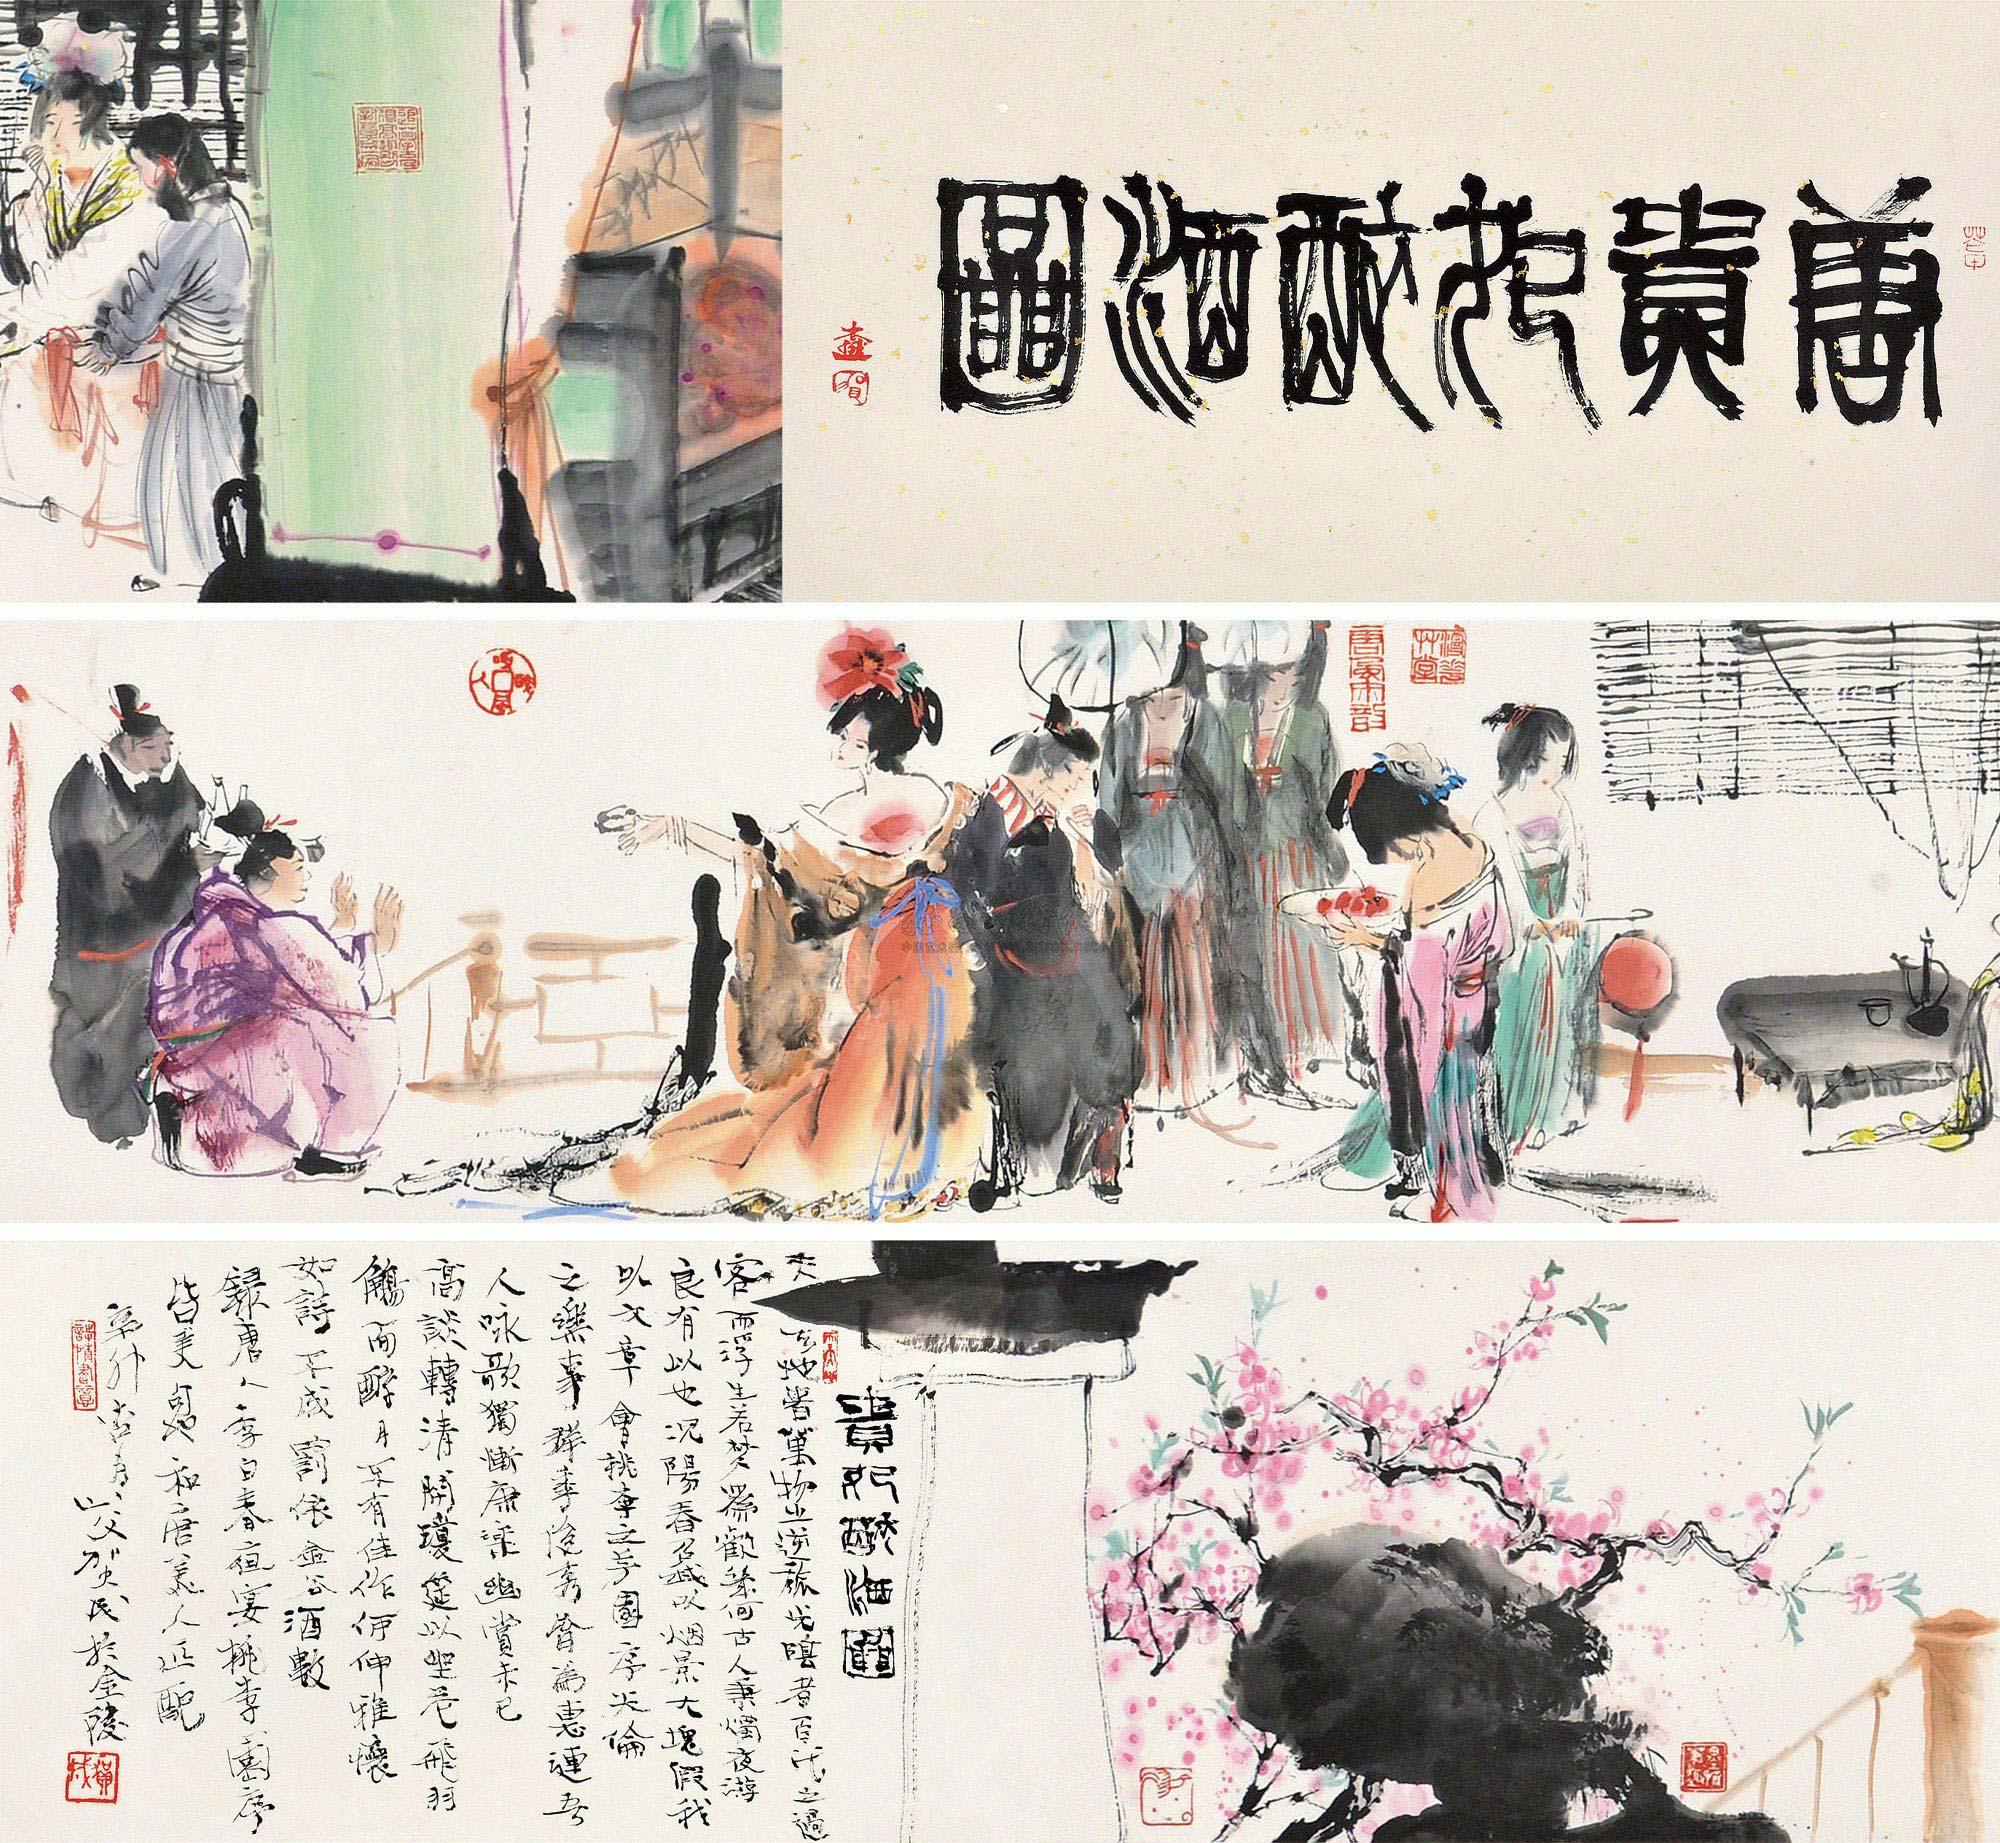 唐貴妃醉酒圖
唐風宋韵
貴妃醉酒圖
夫天地者萬物之逆旅光陰者百代之過
客而浮生若梦為歡幾何古人秉燭夜游
良有以也况陽春召我以烟景大塊假我
以文章會桃李之芳園序天倫
之樂事群季俊秀皆為惠連吾
人咏歌獨慚康樂幽賞未已
高談轉清開瓊筵以坐花飛羽
觴而醉月不有佳作伊伸雅懷
如詩不成罰依金谷酒數
録唐人李白春夜宴桃李園序
皆美艷和唐美人正配
辛卯杏月山父賀成於金陵